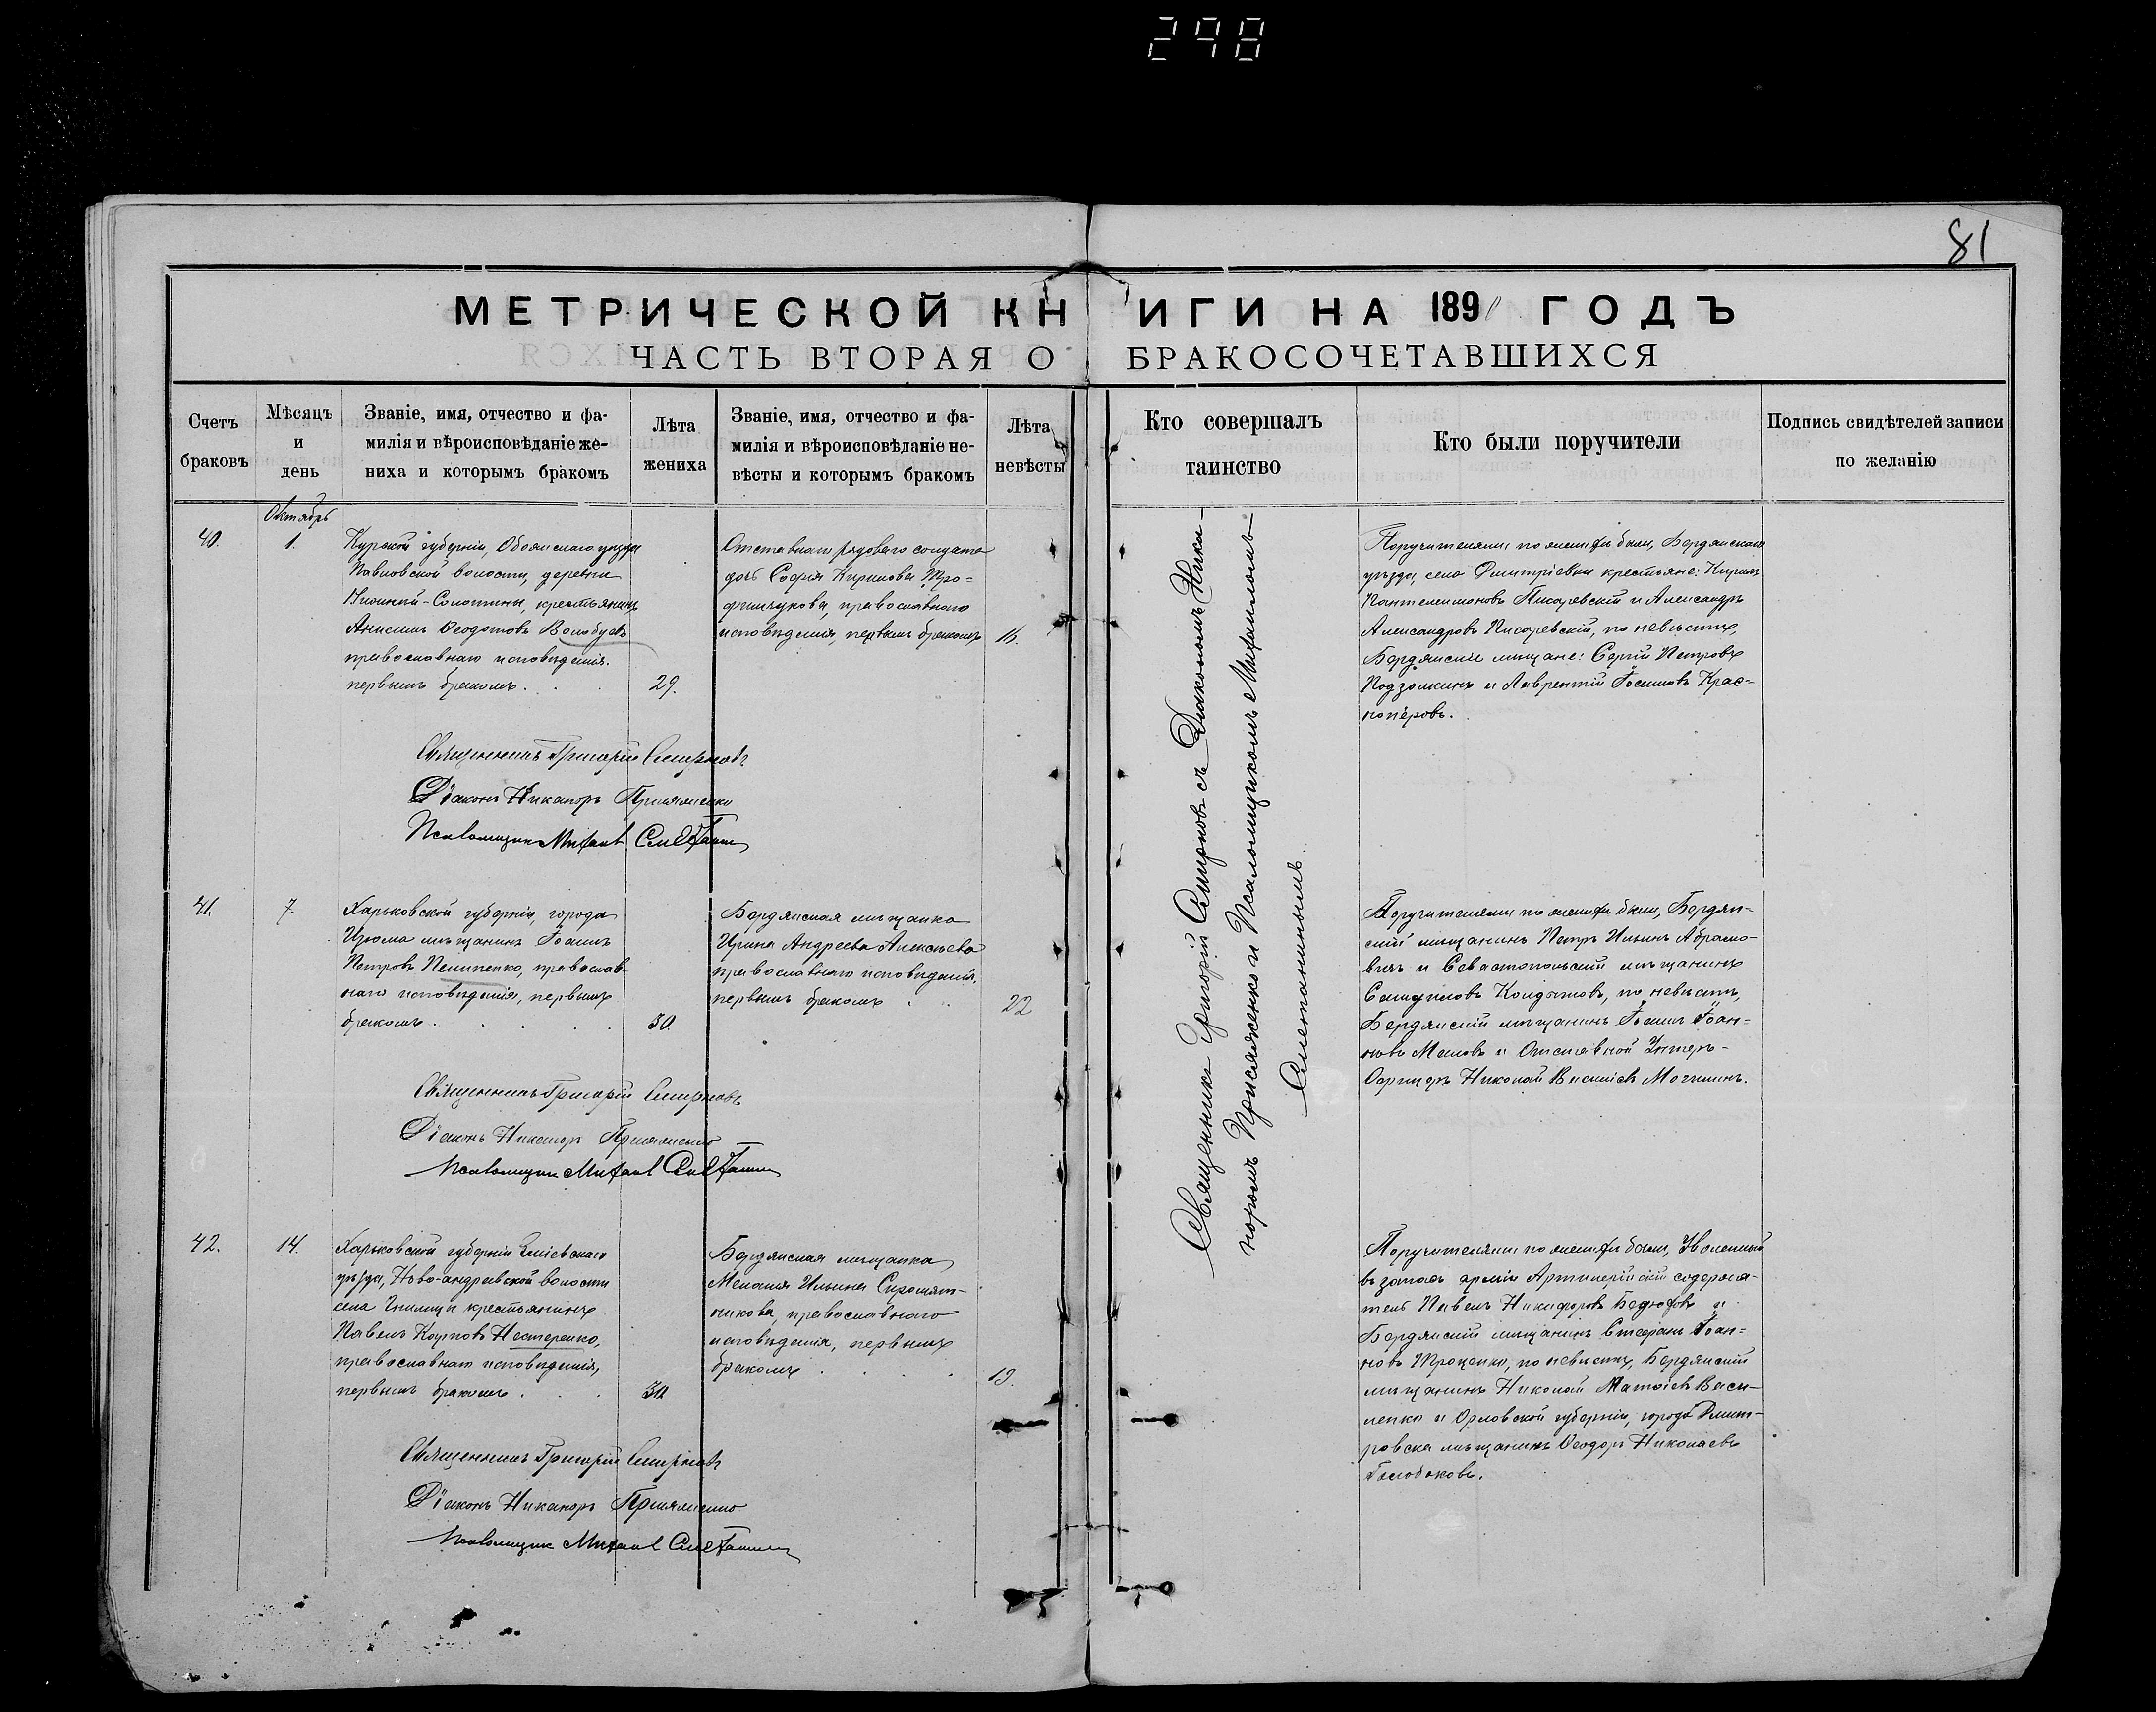 298
81
МЕТРИЧЕСКОЙ КНИГИ НА 1890 ГОДЪ
ЧАСТЬ ВТОРАЯ О БРАКОСОЧЕТАВШИХСЯ
Счетъ
браковъ
Мѣсяцъ
и
день
Званіе, имя, отчество и фа-
милія и вѣроисповѣданіе же-
ниха и которымъ бракомъ
Лѣта
жениха
Званіе, имя, отчество и фа-
милія и вѣроисповѣданіе не-
вѣсты и которымъ бракомъ
Лѣта
невѣсты
Кто совершалъ
таинство
Кто были поручители
Подпись свидѣтелей записи
по желанію
Октябрь
40.
1.
Курской губерніи, Обоянскаго уѣзда
Павловской волости, деревни
-Солотины, крестьянинъ
Анисимъ Ѳеодотовъ Волобуевъ
православнаго исповѣданія.
первымъ бракомъ.
29.
Отставнаго рядоваго солдата
дочь Софія Кирилова Тро-
фимчукова, православнаго
исповѣданія, первымъ бракомъ
16.
Священникъ Григорій Смирновъ съ Діакономъ Ника-
норомъ Присяженко и Псаломщикомъ Михаиломъ
Сметанинымъ.
Поручителями по женихѣ были, Бердянскаго
уѣзда, села Дмитріевки крестьяне: Кирилъ
Пантелеимоновъ Писаревскій и Александръ
Александровъ Писаревскій, по невѣстѣ,
Бердянскіе мѣщане: Сергій Петровъ
Подзолкинъ и Лаврентій Іосифовъ Крас-
нопёровъ.
Священникъ Григорій Смирновъ
Діаконъ Никаноръ Присяженко
Псаломщикъ Михаилъ Сметанинъ
41.
7.
Харьковской губерніи, города
Изюма мѣщанинъ Іоаннъ
Петровъ Пелипенко, православ-
наго исповѣданія, первымъ
бракомъ.
30.
Бердянская мѣщанка
Ирина Андреева Алексѣева
православнаго исповѣданія,
первымъ бракомъ
22
Поручителями по женихѣ были, Бердян-
скій мѣщанинъ Петръ Ильинъ Абрамо-
вичъ и Севастопольскій мѣщанинъ
по невѣстѣ,
Бердянскій мѣщанинъ Іоаннъ Іоан-
новъ и Отставной Унтеръ-
Офицеръ Николай Васильевъ
Священникъ Григорій Смирновъ
Діаконъ Никаноръ Присяженко
Псаломщикъ Михаилъ Сметанинъ
42.
14.
Харьковской губерніи Зміевскаго
уѣзда, Ново-андреевской волости
села Гнилицы крестьянинъ
Павелъ Карповъ Нестеренко,
православнаго исповѣданія,
первымъ бракомъ.
30.
Бердянская мѣщанка
Меланія Ильина Сыромят-
никова, православнаго
исповѣданія, первымъ
бракомъ
19.
Поручителями по женихѣ были, Уволенный
въ запасъ арміи Артилерійскій содержа-
тель Павелъ Никифоровъ и
Бердянскій мѣщанинъ Стефанъ Іоан-
новъ Троценко, по невѣстѣ, Бердянскій
мѣщанинъ Николай Матѳіевъ Васи-
ленко и Орловской губерніи, города Дмит-
ровска мѣщанинъ Ѳеодоръ Николаевъ
Голобоковъ.
Священникъ Григорій Смирновъ
Діаконъ Никаноръ Присяженко
Псаломщикъ Михаилъ Сметанинъ